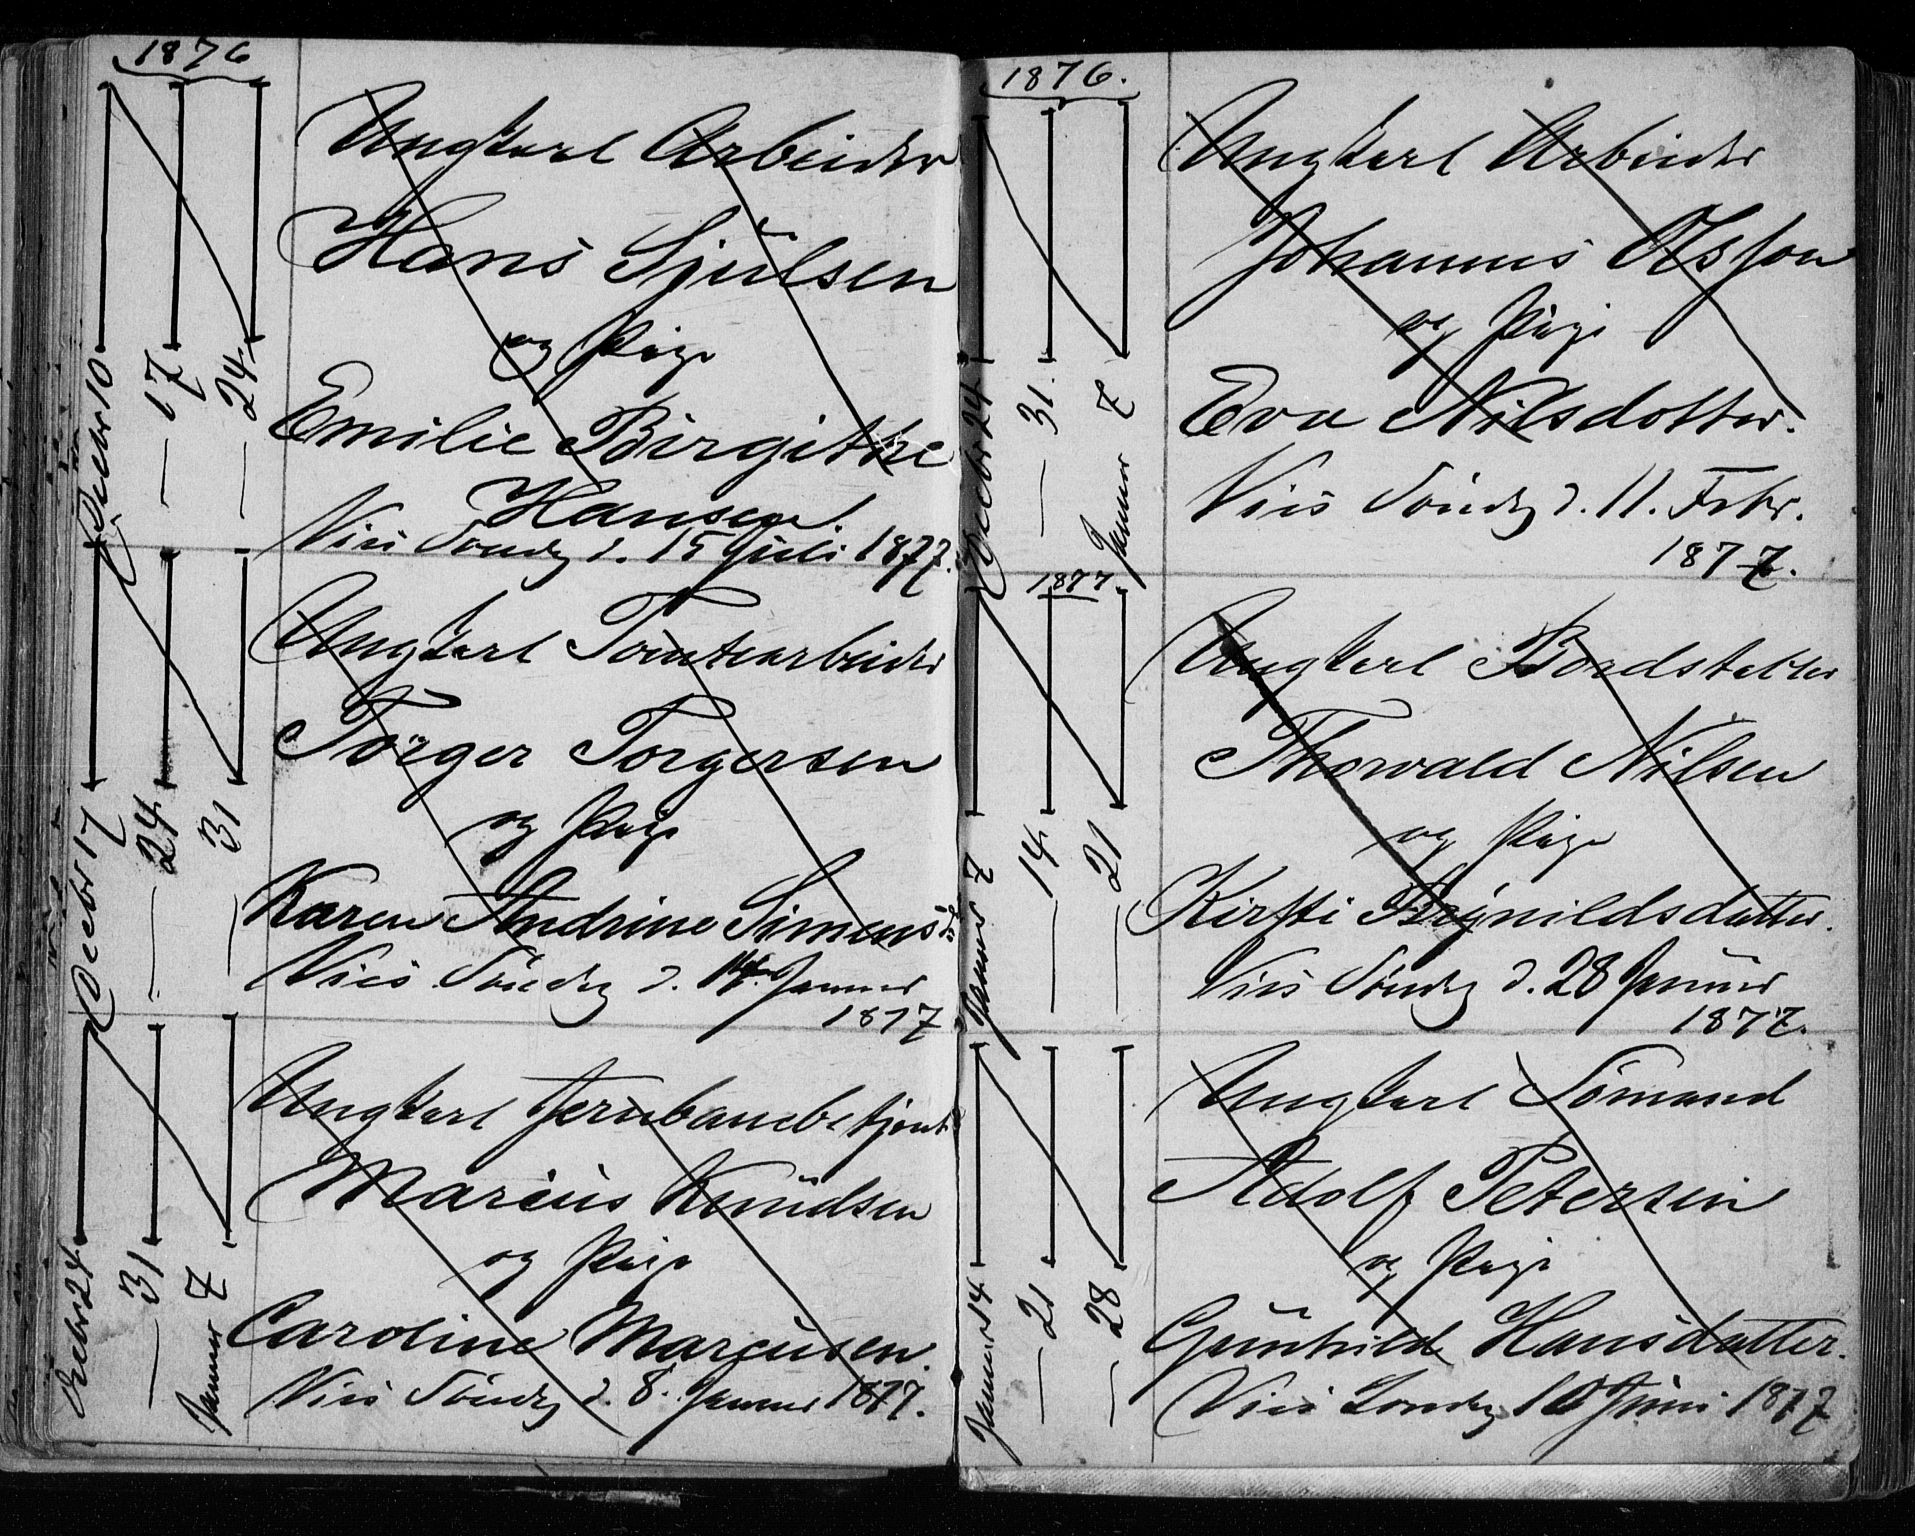 1876
Decbr 10
— 17
— 24
Ungkarl Arbeider
Hans Sjulsen
og Pige
Emilie Birgitte
Hansen
Vies Søndag d. 15 Juli 1877.
Decbr 17
— 24
— 31
Ungkarl Tomtearbeider
Torger Torgersen
og Pige
Karen Andrine Simens
Vies Søndag d. 14 Januar
1877
Decbr 24
— 31
Januar 7
Ungkarl Jernbanebetjent
Marcus Knudsen
og Pige
Caroline Marcusen.
Vies Søndag d. 8. Januar 1877.
1876.
Decbr 24
— 31.
Januar 7
Ungkarl Arbeider
Johannes Olsson
og Pige
Eva Nilsdotter.
Vies Søndag d. 11. Febr.
1877.
1877.
Januar 7
— 14
— 21
Ungkarl Bordstabler
Thorvald Nilsen
og Pige
Kirsti Brynildsdatter.
Vies Søndag d. 28 Januar
1877.
Januar 14
— 21
— 28
Ungkarl Sømand
Adolf Petersen
og Pige
Gunhild Hansdatter.
Vies Sondag 10 Juni 1877